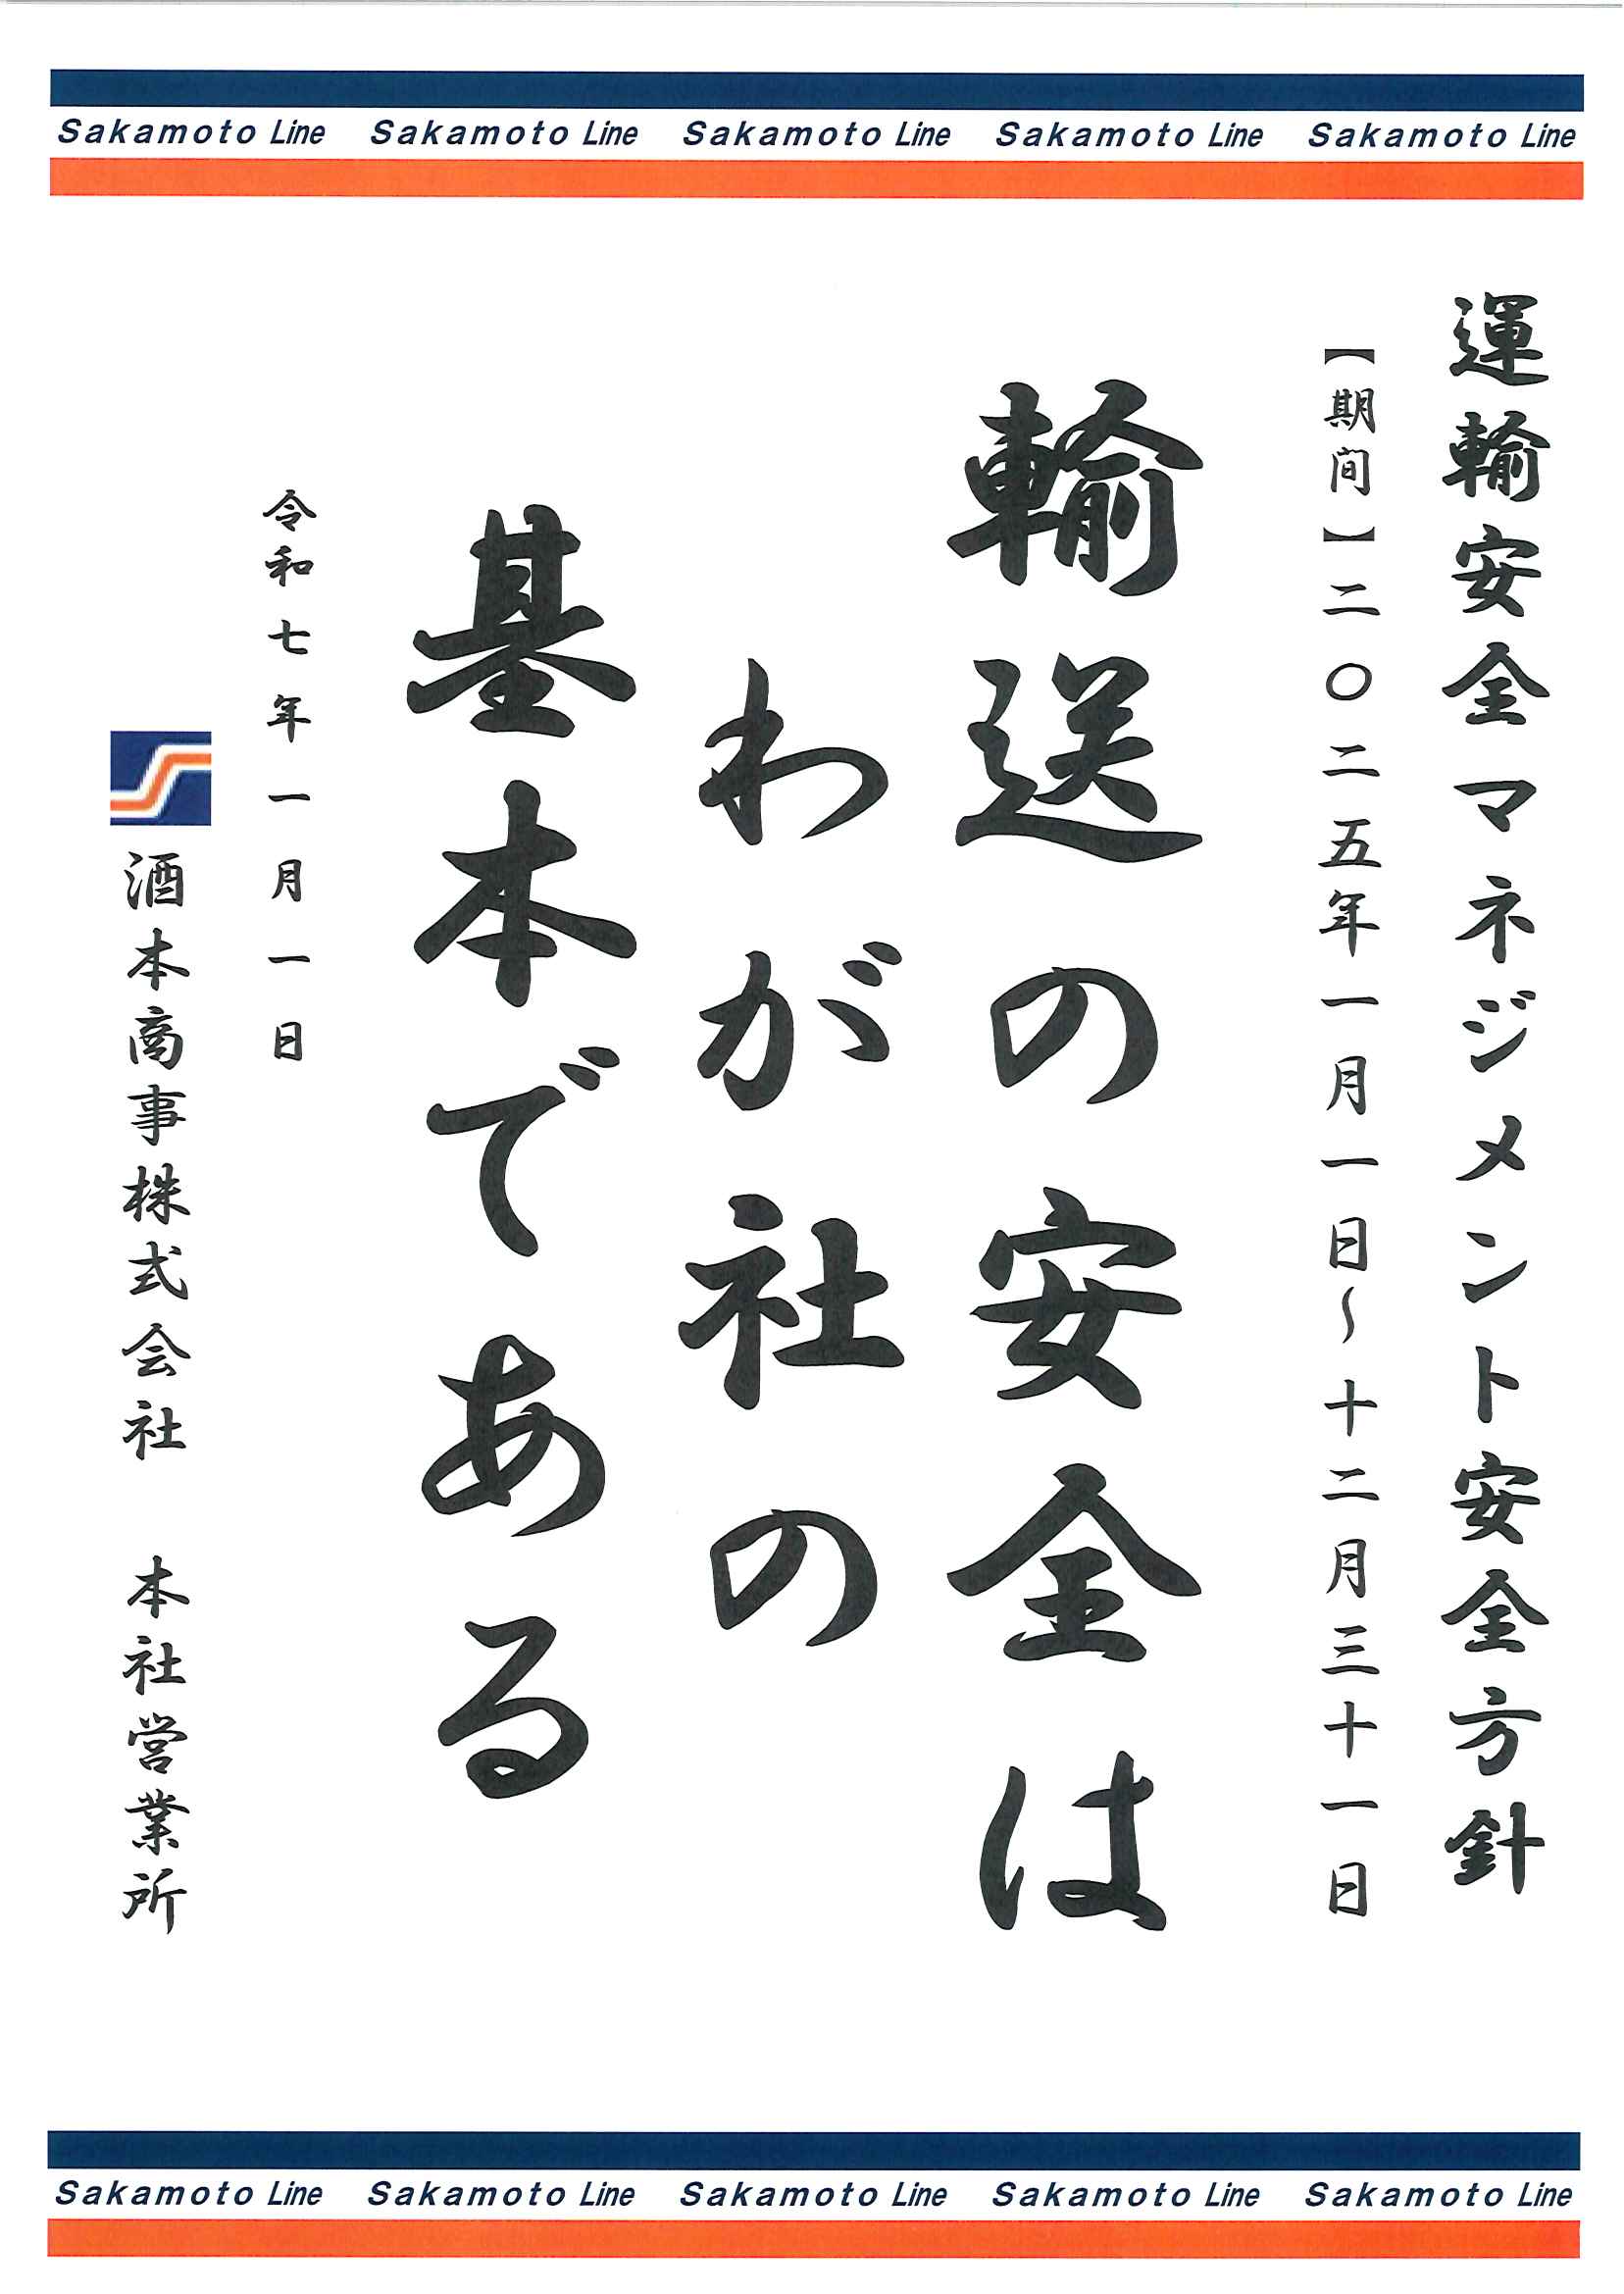 Sakamoto Line Sakamoto Line Sakamoto Line Sakamoto Line Sakamoto Line
運輸安全マネジメント安全方針
【期間】二〇二五年一月一日～十二月三十一日
輸送の安全は
わが社の
基本である
令和七年一月一日
酒本商事株式会社 本社営業所
Sakamoto Line Sakamoto Line Sakamoto Line Sakamoto Line Sakamoto Line